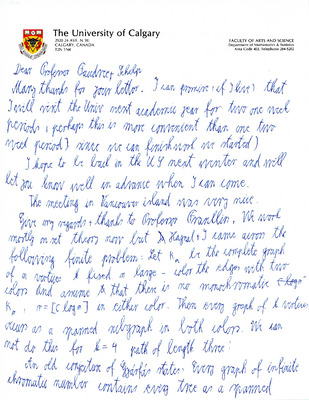 The University of Calgary
2920 24 AVE. N.W.
CALGARY, CANADA
T2N 1N4
FACULTY OF ARTS AND SCIENCE
Department of Mathematics & Statistics
Area Code 403, Telephone 284-5202
Dear Professor
Many thanks for your letter. I can promise (if I live) that
I will visit the Univ next academic year for two one week
periods, perhaps this is more convenient than one two
week period) since we can finish work we started)
I hope to be back in the US next winter and will
let you know well in advance when I can come.
The meeting in Vancouver island was very nice.
Give my regards + thanks to Professor We work
mostly on set theory now but Hajnal + I came across the
following finite problem: Let Kn be the complete graph
of n vertices k fixed n large - color the edges with two
colors and assume that there is no monochromatic
Km, m = [c log n] in either color. Then every graph of k vertices
occurs as a spanned subgraph in both colors. We can
not do this for k = 4 path of length three!
An old conjecture of Gyárfás states: Every graph of infinite
chromatic number contains every tree as a spanned